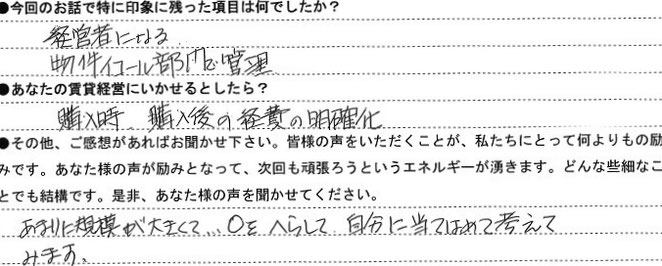 ●今回のお話で特に印象に残った項目は何でしたか？
経営者になる
物件イコール部門で管理
●あなたの賃貸経営にいかせるとしたら？
購入時、購入後の経費の明確化
●その他、ご感想があればお聞かせ下さい。皆様の声をいただくことが、私たちにとって何よりもの励
みです。あなた様の声が励みとなって、次回も頑張ろうというエネルギーが湧きます。どんな些細なこ
とでも結構です。是非、あなた様の声を聞かせてください。
あまりに規模が大きくて…0をへらして自分に当てはめて考えて
みます。